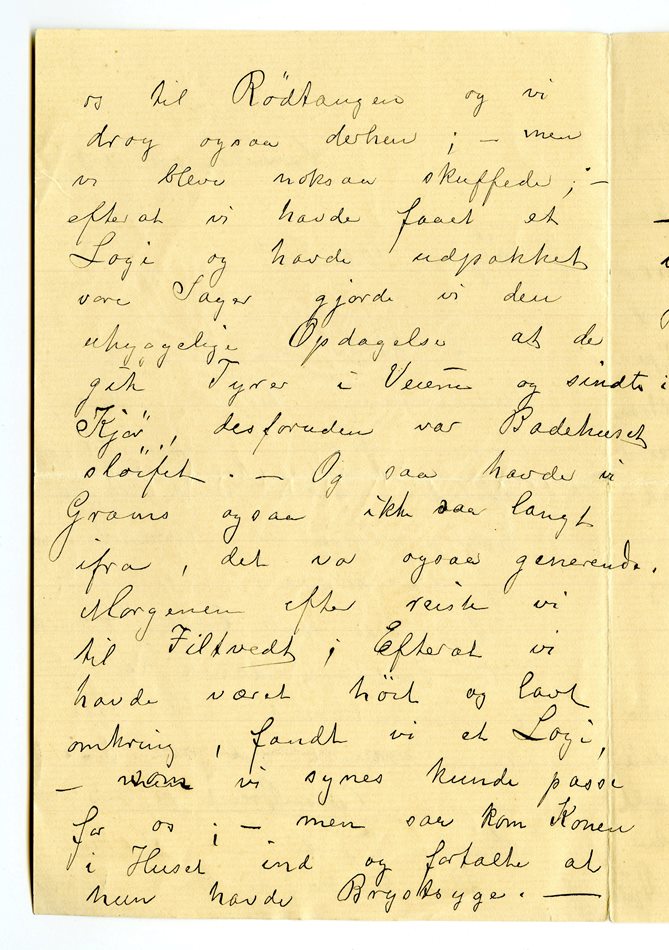 os til Rödtangen og vi
drog ogsaa derhen ; — men
vi bleve noksaa skuffede ; —
efterat vi havde faaet et
Logi og havde udpakket
vore Sager gjorde vi den
uhyggelige Opdagelse at de
gik Tyrer i Veiene og sindte
Kjör , desforuden var Badehuset
slöifet . — Og saa havde vi
Grams ogsaa ikke saa langt
ifra , det va ogsaa generende .
Morgenen efter reiste vi
til Filtvedt ; Efterat vi
havde været höit og lavt
omkring , fandt vi et Logi ,
— som vi synes kunde passe
for os ; — men saa kom Konen
i Huset ind og fortalte at
hun havde Brystsyge . —